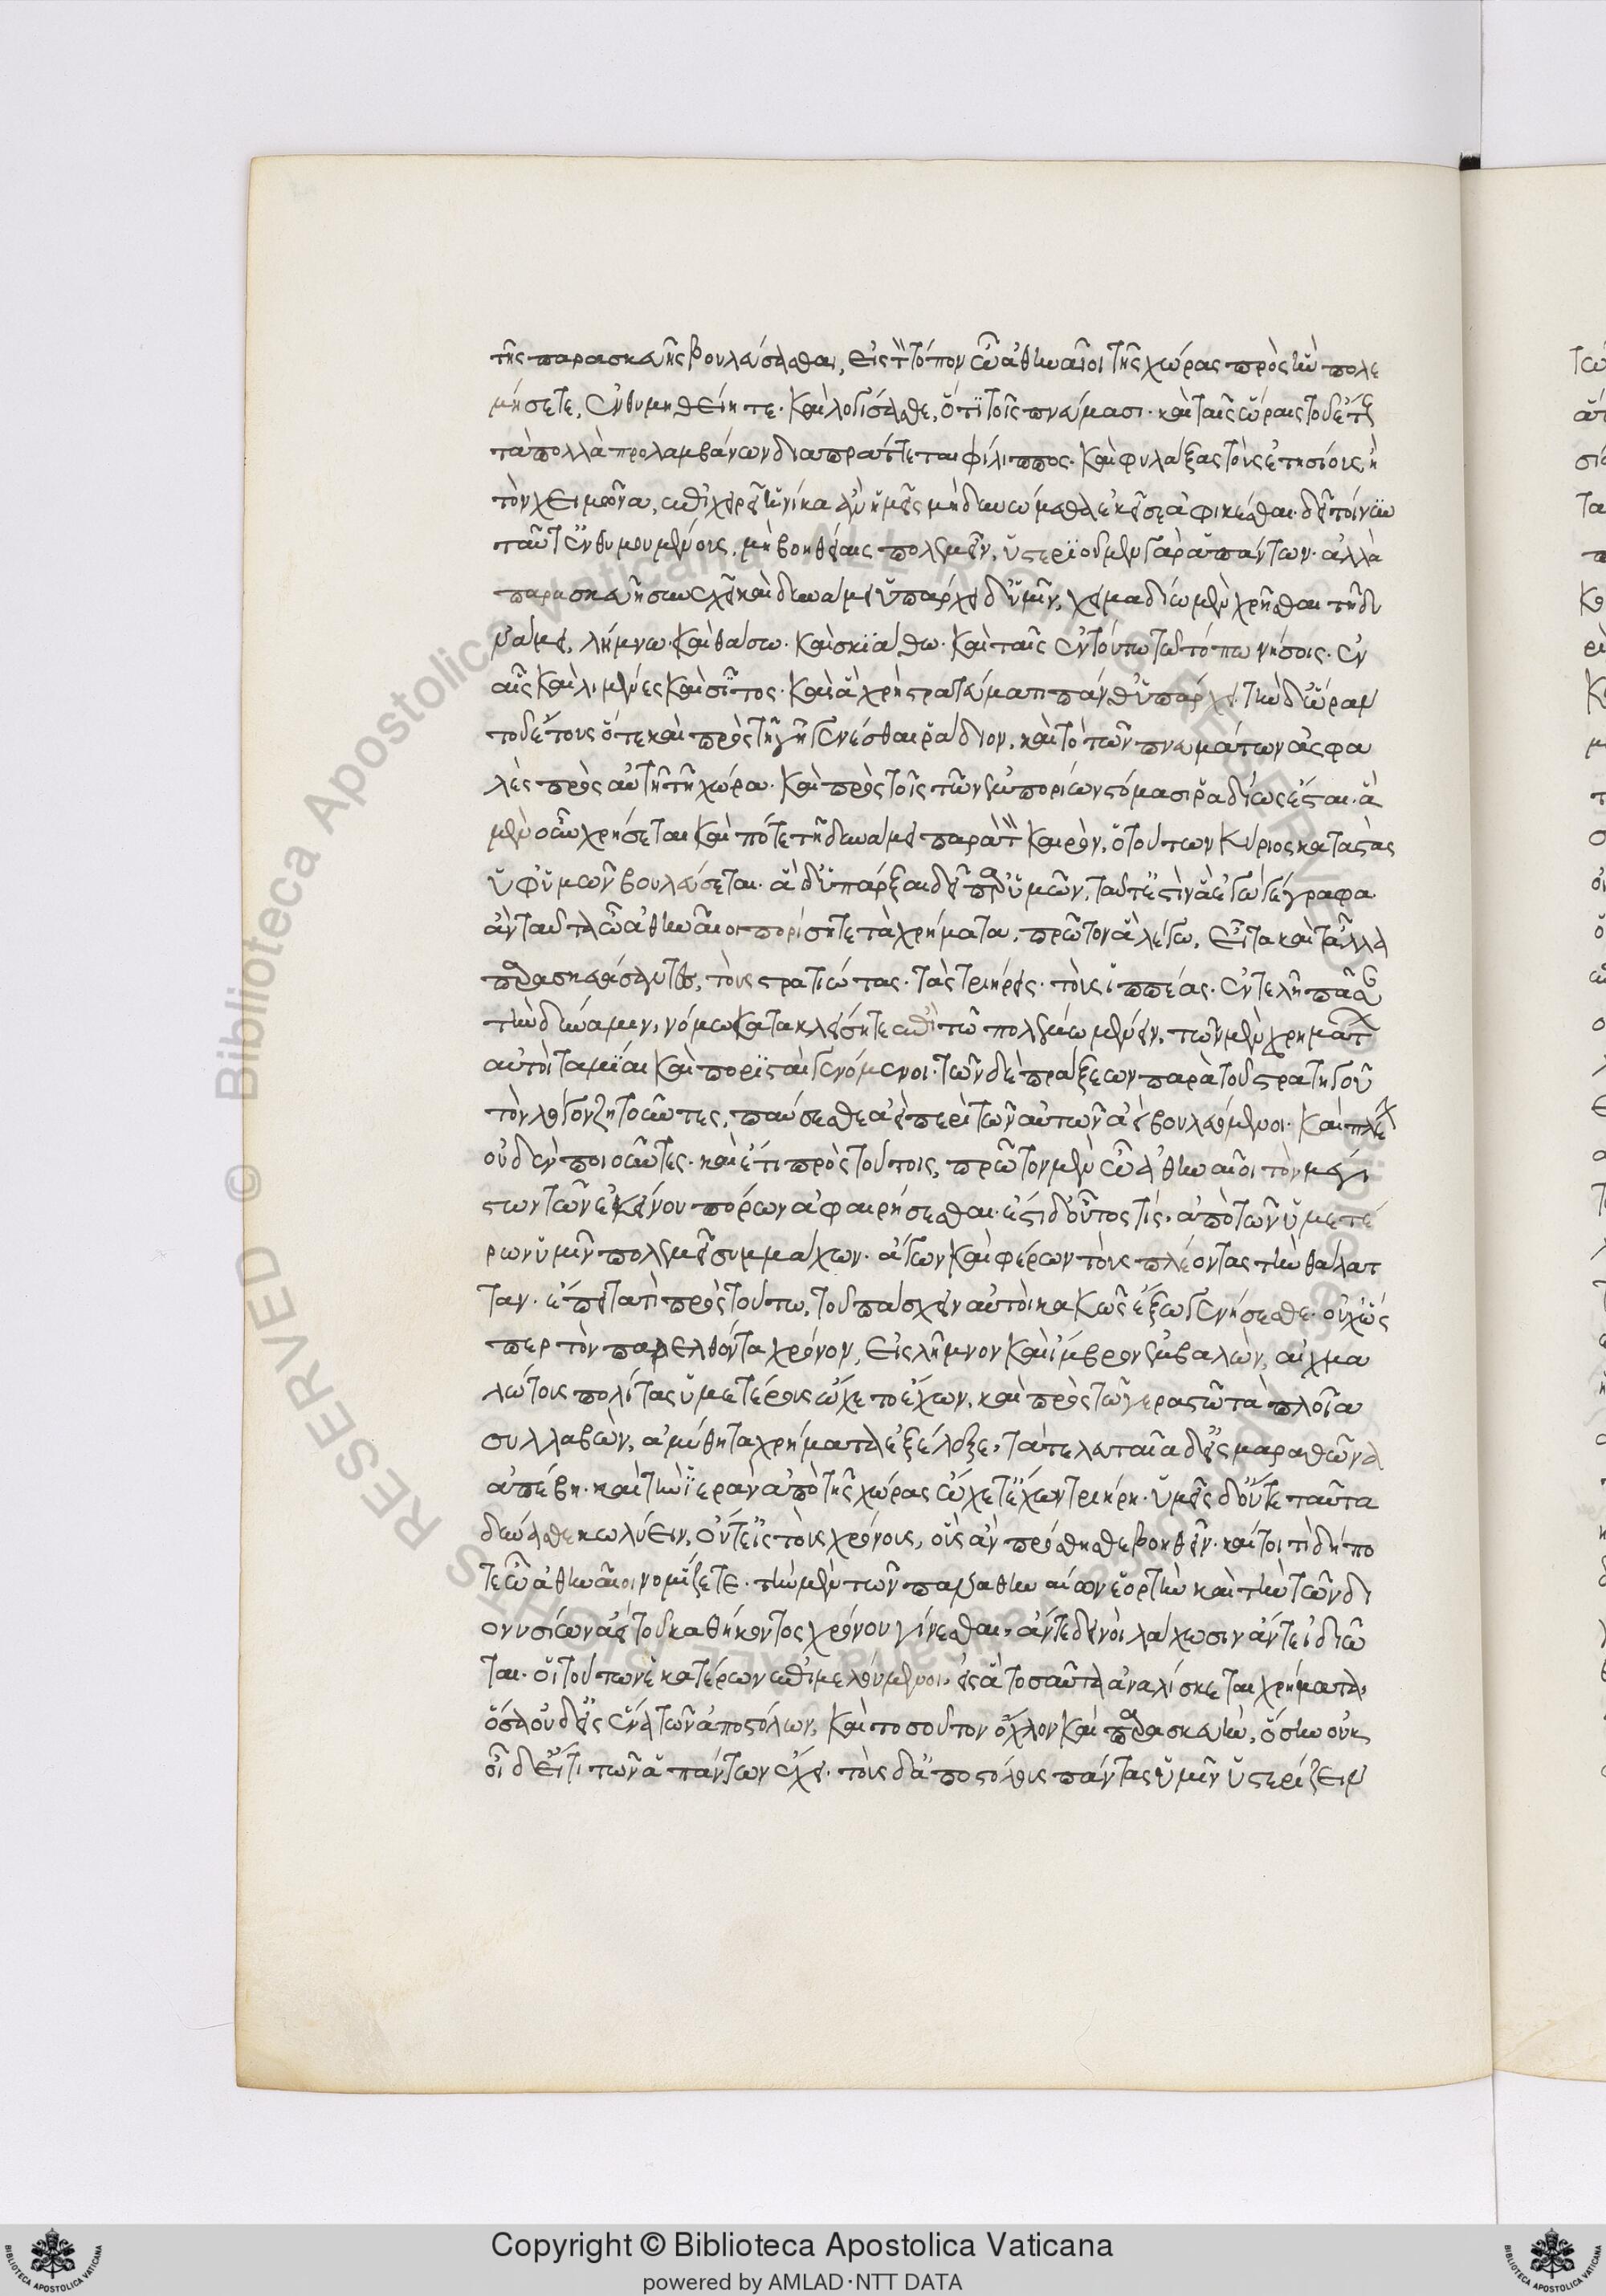 τῆς παρασκευῆς βουλεύσασθαι, εἰς τὸν τόπον ὦ ἀθηναῖοι τῆς χώρας πρὸς ἣν πολε
μήσετε, ἐνθυμηθείητε· καὶ λογίσαισθε, ὅτι τοῖς πνεύμασι· καὶ ταῖς ὥραις τοῦ ἔτους
τὰ πολλὰ προλαμβάνων διαπράττεται φίλιππος· καὶ φυλάξας τοὺς ἐτησίους, ἢ
τὸν χειμῶνα, ἐπιχειρεῖ ἡνίκα ἂν ἡμεῖς μὴ δυνώμεθα ἐκεῖσε ἀφικέσθαι· δεῖ τοίνυν
ταῦτ' ἐνθυμουμένους, μὴ βοηθείαις πολεμεῖν, ὑστεριοῦμεν γὰρ ἁπάντων· ἀλλὰ
παρασκευῇ συνεχεῖ καὶ δυνάμει ὑπάρχει δ' ὑμῖν, χειμαδίῳ μὲν χρῆσθαι τῇ δυ
νάμει, λήμνῳ· καὶ θάσῳ· καὶ σκιάθῳ· καὶ ταῖς ἐν τούτῳ τῷ τόπῳ νήσοις· ἐν
αἷς καὶ λιμένες καὶ σῖτος· καὶ ἃ χρὴ στρατεύματι πάνθ' ὑπάρχει· τὴν δ' ὥραν
τοῦ ἔτους ὅτε καὶ πρὸς τῇ γῇ γενέσθαι ῥάδιον, καὶ τὸ τῶν πνευμάτων ἀσφα
λὲς πρὸς αὐτῇ τῇ χώρᾳ· καὶ πρὸς τοῖς τῶν ἐμπορίων στόμασι ῥαδίως ἔσται· ἃ
μὲν οὖν χρήσεται καὶ πότε τῇ δυνάμει παρὰ τὸν καιρὸν, ὁ τούτων κύριος καταστὰς
ὑφ' ὑμῶν βουλεύσεται· ἃ δ' ὑπάρξαι δεῖ παρ' ὑμῶν, ταῦτ' ἐστὶν ἃ ἐγὼ γέγραφα
ἂν ταῦτα ὦ ἀθηναῖοι πορίσητε τὰ χρήματα, πρῶτον ἃ λέγω, εἶτα καὶ τἆλλα
παρασκευάσαντες, τοὺς στρατιώτας· τὰς τριήρεις· τοὺς ἱππέας· ἐντελῆ πᾶσαν
τὴν δύναμιν, νόμῳ κατακλείσητε ἐπὶ τῷ πολέμῳ μένειν, τῶν μὲν χρημάτων
αὐτοὶ ταμίαι καὶ πορισταὶ γενόμενοι· τῶν δὲ πράξεων παρὰ τοῦ στρατηγοῦ
τὸν λόγον ζητοῦντες, παύσεσθε ἀεὶ περὶ τῶν αὐτῶν ἀεὶ βουλευόμενοι· καὶ πλέον
οὐδὲν ποιοῦντες· καὶ ἔτι πρὸς τούτοις, πρῶτον μὲν ὦ ἀθηναῖοι τὸν μέγι
στον τῶν ἐκείνου πόρων ἀφαιρήσεσθαι· ἔστι δ' οὗτος τίς, ἀπὸ τῶν ὑμετέ
ρων ὑμῖν πολεμεῖ συμμάχων· ἄγων καὶ φέρων τοὺς πλέοντας τὴν θάλατ
ταν· ἔπειτα τί πρὸς τούτῳ, τοῦ πάσχειν αὐτοὶ κακῶς ἔξω γενήσεσθε· οὐχ ὥς
περ τὸν παρελθόντα χρόνον, εἰς λῆμνον καὶ ἴμβρον ἐμβαλὼν, αἰχμα
λώτους πολίτας ὑμετέρους ᾤχετο ἔχων, καὶ πρὸς τῷ γεραιστῷ τὰ πλοῖα
συλλαβὼν, ἀμύθητα χρήματα ἐξέλεξε, τὰ τελευταῖα δ' εἰς μαραθῶνα
ἀπέβη· καὶ τὴν ἱερὰν ἀπὸ τῆς χώρας ᾤχετ' ἔχων τριήρη· ὑμεῖς δ' οὔτε ταῦτα
δύνασθε κωλύειν, οὔτ' εἰς τοὺς χρόνους, οὓς ἂν πρόθησθε βοηθεῖν· καίτοι τί δήπο
τε ὦ ἀθηναῖοι νομίζετε· τὴν μὲν τῶν παναθηναίων ἑορτὴν καὶ τὴν τῶν δι
ονυσίων ἀεὶ τοῦ καθήκοντος χρόνου γίνεσθαι, ἄν τε δεινοὶ λάχωσιν ἄν τε ἰδιῶ
ται· οἱ τούτων ἑκατέρων ἐπιμελούμενοι, εἰς ἃ τοσαῦτα ἀναλίσκεται χρήματα,
ὅσα οὐδ' εἰς ἕνα τῶν ἀποστόλων, καὶ τοσοῦτον ὄχλον καὶ παρασκευὴν, ὅσην οὐκ
οἶδ' εἴ τι τῶν ἁπάντων ἔχει· τοὺς δ' ἀποστόλους πάντας ὑμῖν ὑστερίζειν
Copyright © Biblioteca Apostolica Vaticana
powered by AMLAD·NTT DATA